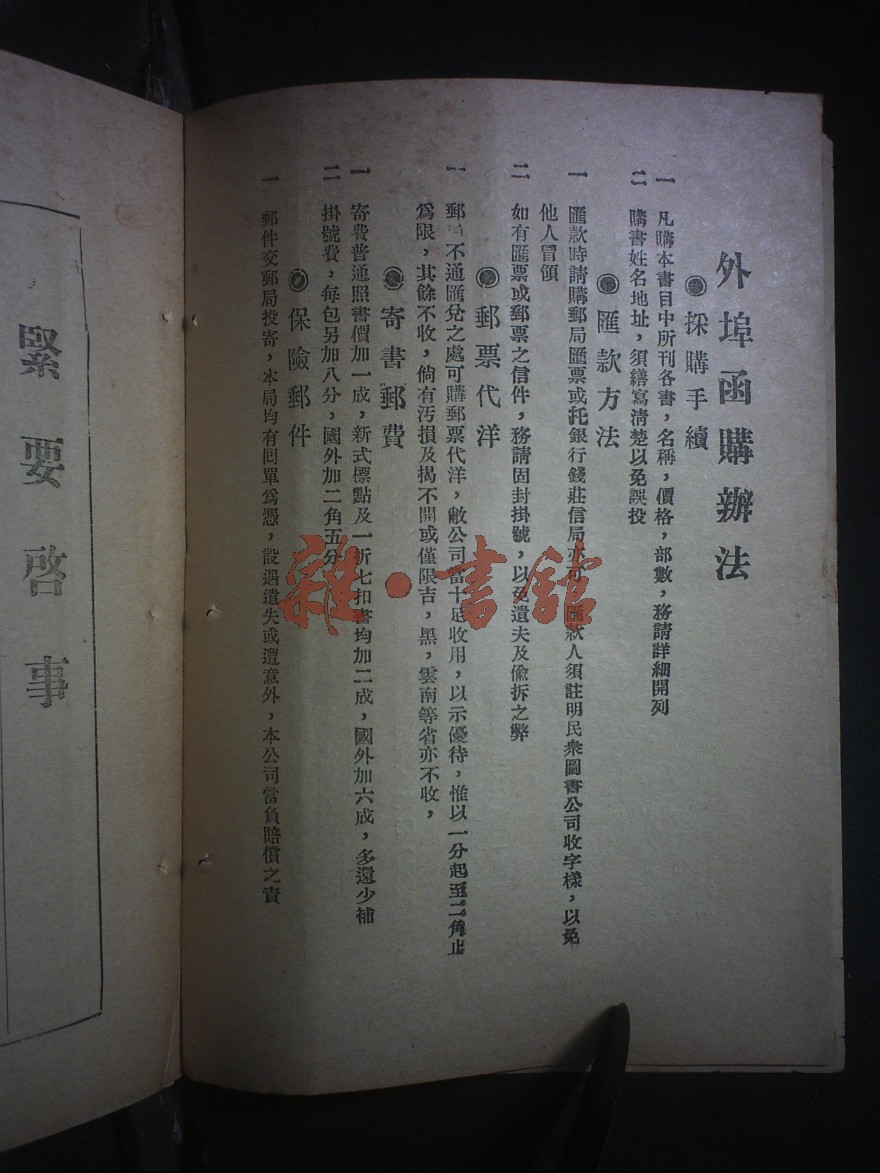 外埠函購辦法
◉採購手續
一 凡購本書目中所刊各書，名稱，價格，部數，務請詳細開列
二 購書姓名地址，須繕寫清楚以免誤投
◉匯款方法
一 匯款時請購郵局匯票或托銀行錢莊信局亦可，匯款人須註明民衆圖書公司收字樣，以免
他人冒領
二 如有匯票或郵票之信件，務請固封掛號，以免遺失及偸拆之弊
◉郵票代洋
一 郵局不通匯兌之處可購郵票代洋，敝公司當十足收用，以示優待，惟以一分起至二角止
爲限，其餘不收，倘有汚損及揭不開或僅限吉，黑，雲南等省亦不收，
◉寄書郵費
一 寄費普通照書價加一成，新式標點及一折七扣書均加二成，國外加六成，多還少補
二 掛號費，每包另加八分，國外加二角五分
◉保險郵件
一 郵件交郵局投寄，本局均有回單爲憑，設遇遺失或遭意外，本公司當負賠償之責
緊要啓事
雜·書館